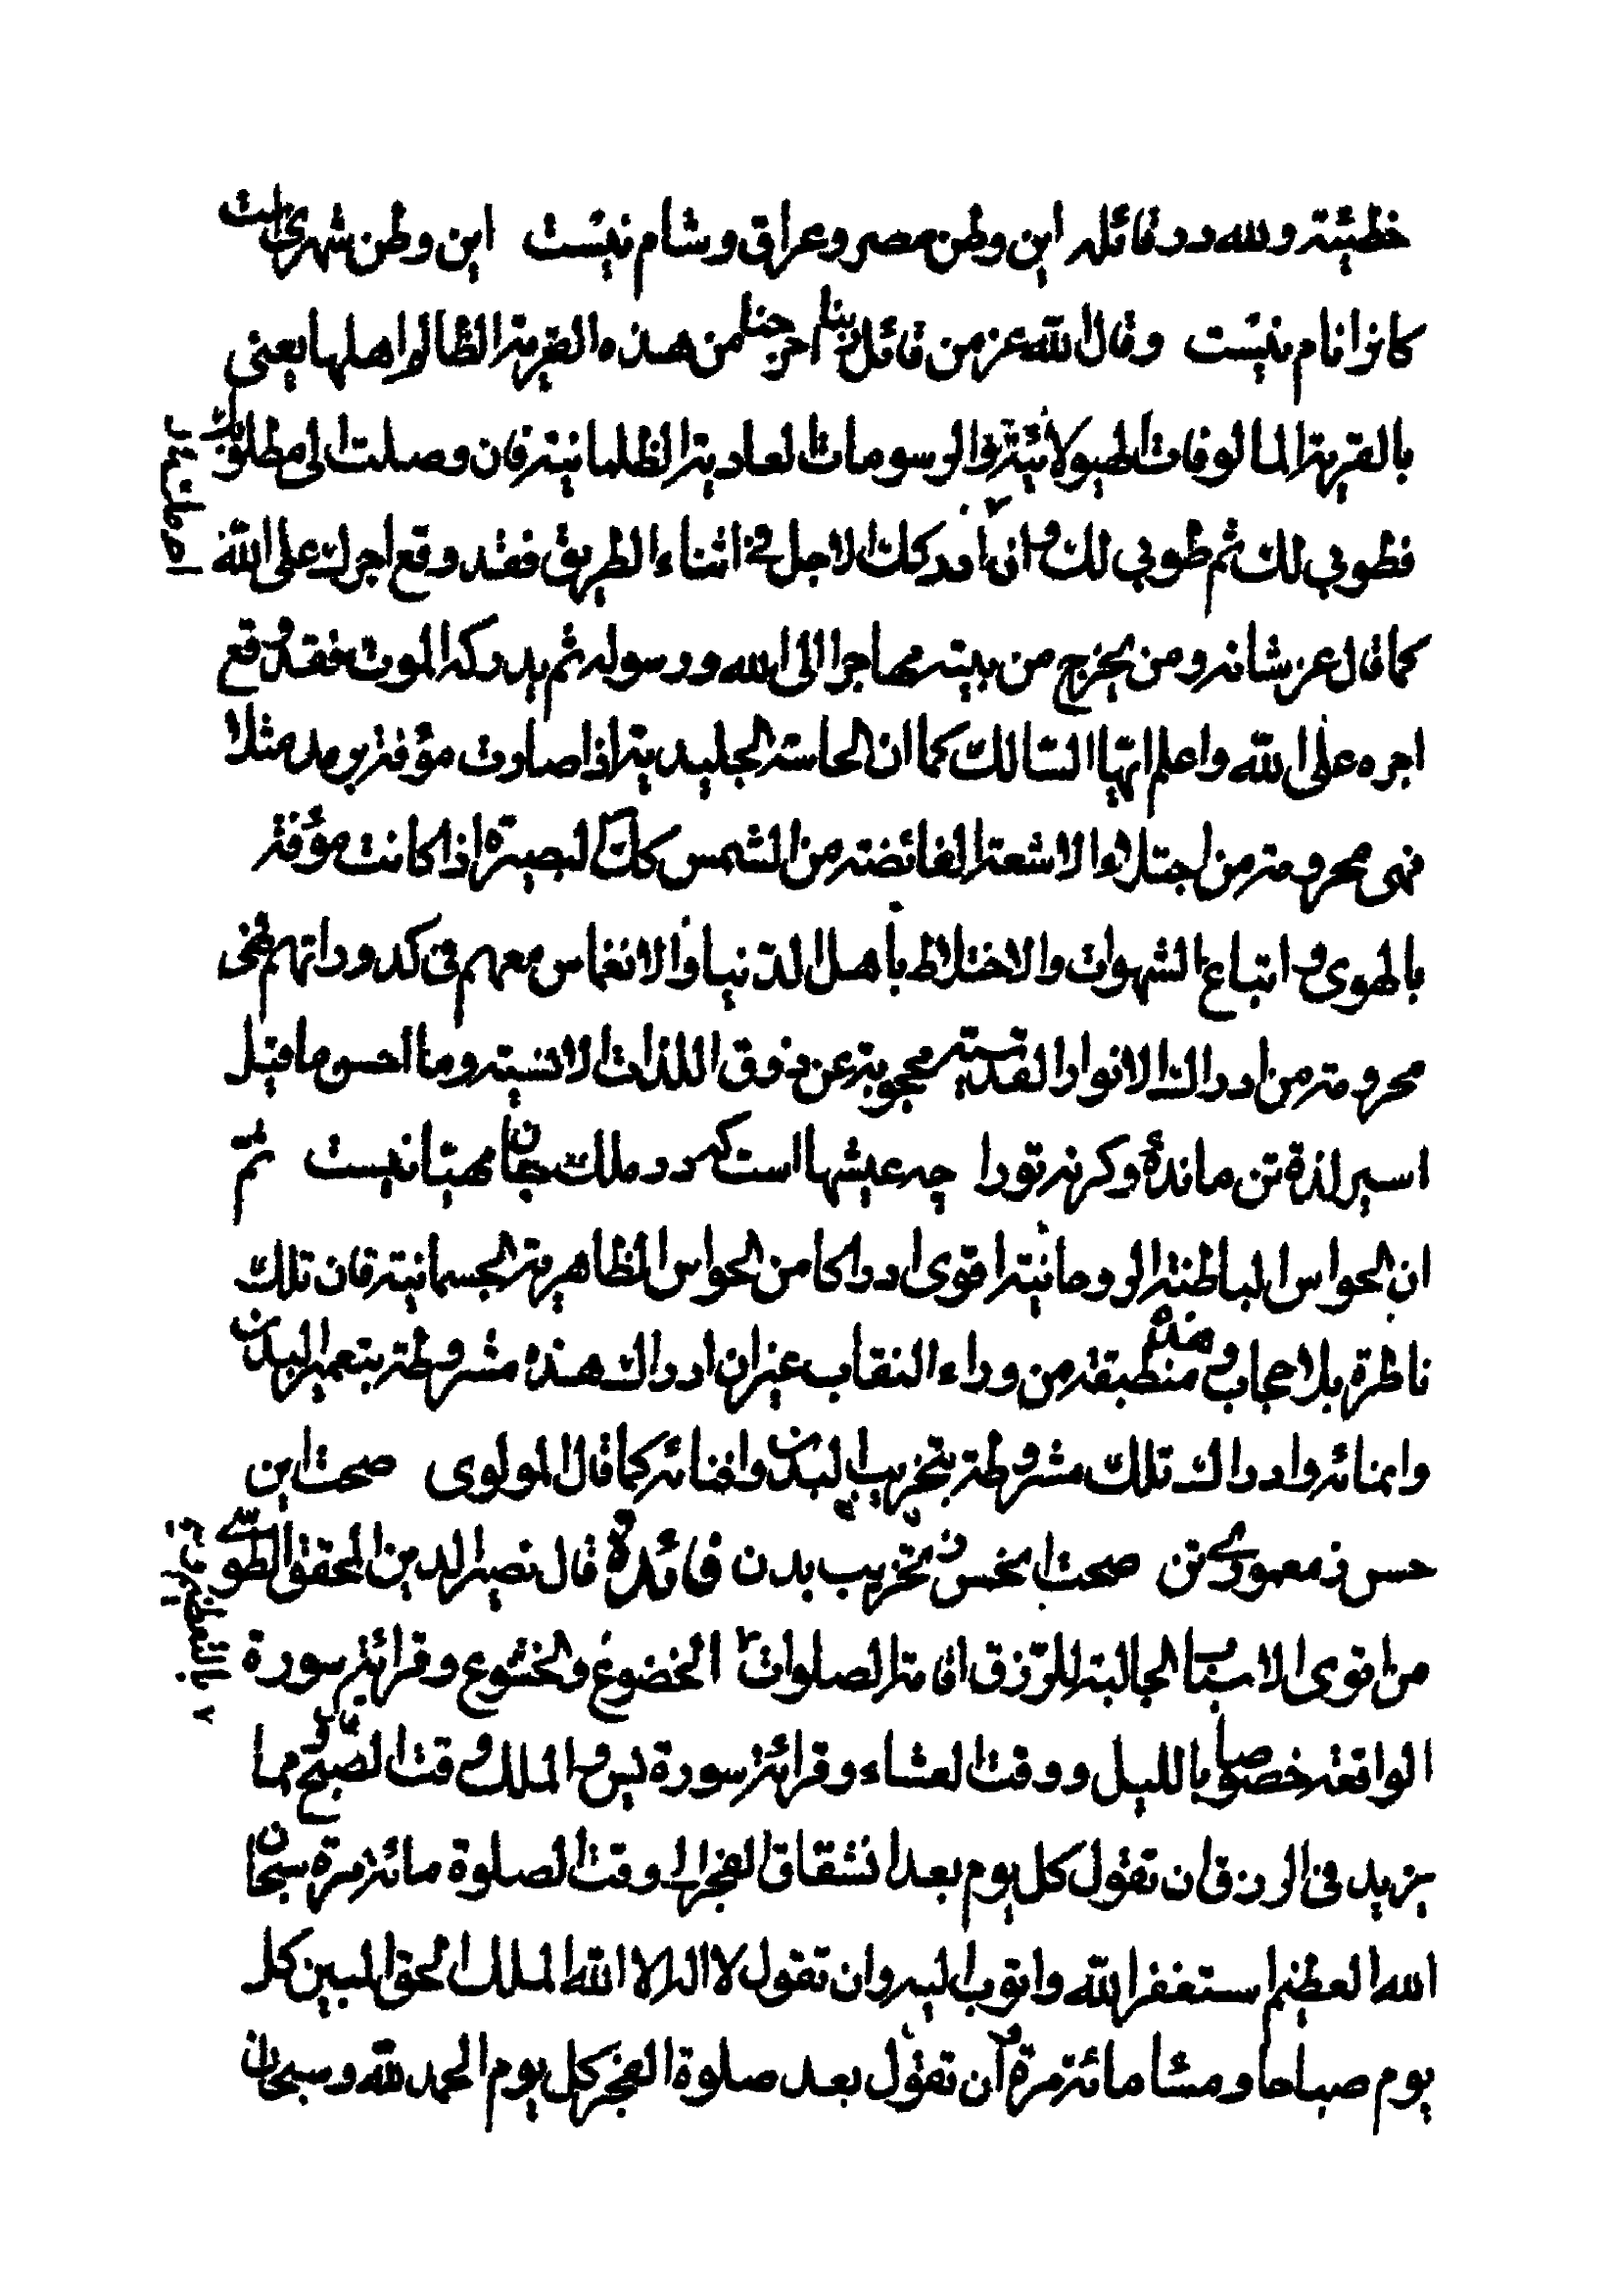 خطيئة ولله در قائله اين وطن مصر وعراق وشام نيست اين وطن شهريست
كانرا نام نيست وقال الله عز من قائل ربنا اخرجنا من هذه القرية الظالم اهلها يعني
بالقرية المالوفات الهيولانية والرسومات العادية الظلمانية فان وصلت الى مطلوبك
فطوبى لك ثم طوبى لك وان ادركك الاجل في اثناء الطريق فقد وقع اجرك على الله
كما قال عز شانه ومن يخرج من بيته مهاجرا الى الله ورسوله ثم يدركه الموت فقد وقع
اجره على الله واعلم ايها السالك كما ان الحاسة الجليدية اذا صارت مؤفة برمد مثلا
فهى محرومة من اجتلاء الاشعة الفائضة من الشمس كك البصيرة اذا كانت مؤفة
بالهوى و اتباع الشهوات والاختلاط باهل الدنيا والانغماس معهم في كدوراتهم فهى
محرومة من ادراك الانوار القدسية محجوبة عن ذوق اللذات الانسية وما احسن ما قيل
اسير لذة تن ماندۀ وكرنه تورا چه عيشها است كه در ملك جان مهيا نيست ثم
ان الحواس الباطنة الروحانية اقوى ادراكا من الحواس الظاهرية الجسمانية فان تلك
ناظرة بلا حجاب وهذه منطبقة من وراء النقاب غير ان ادراك هذه مشروطة بتعمير البدن
وانمائه وادراك تلك مشروطة بتخريب البدن وافنائه كما قال المولوى صحت اين
حس ز معمورى تن صحت ان حس ز تخريب بدن فائدة قال نصير الدين المحقق الطوسي
من اقوى الاسباب الجالبة للرزق اقامة الصلوات الخضوع والخشوع وقرائة سورة
الواقعة خصوصا بالليل ووقت العشاء وقرائة سورة يس و الملك وقت الصبح ومما
يزيد في الرزق ان تقول كل يوم بعد انشقاق الفجر الى وقت الصلوة مائة مرة سبحان
الله العظيم استغفر الله واتوب اليه وان تقول لا اله الا الله الملك الحق المبين كل
يوم صباحا ومساء مائة مرة وان تقول بعد صلوة الفجر كل يوم الحمد لله وسبحان